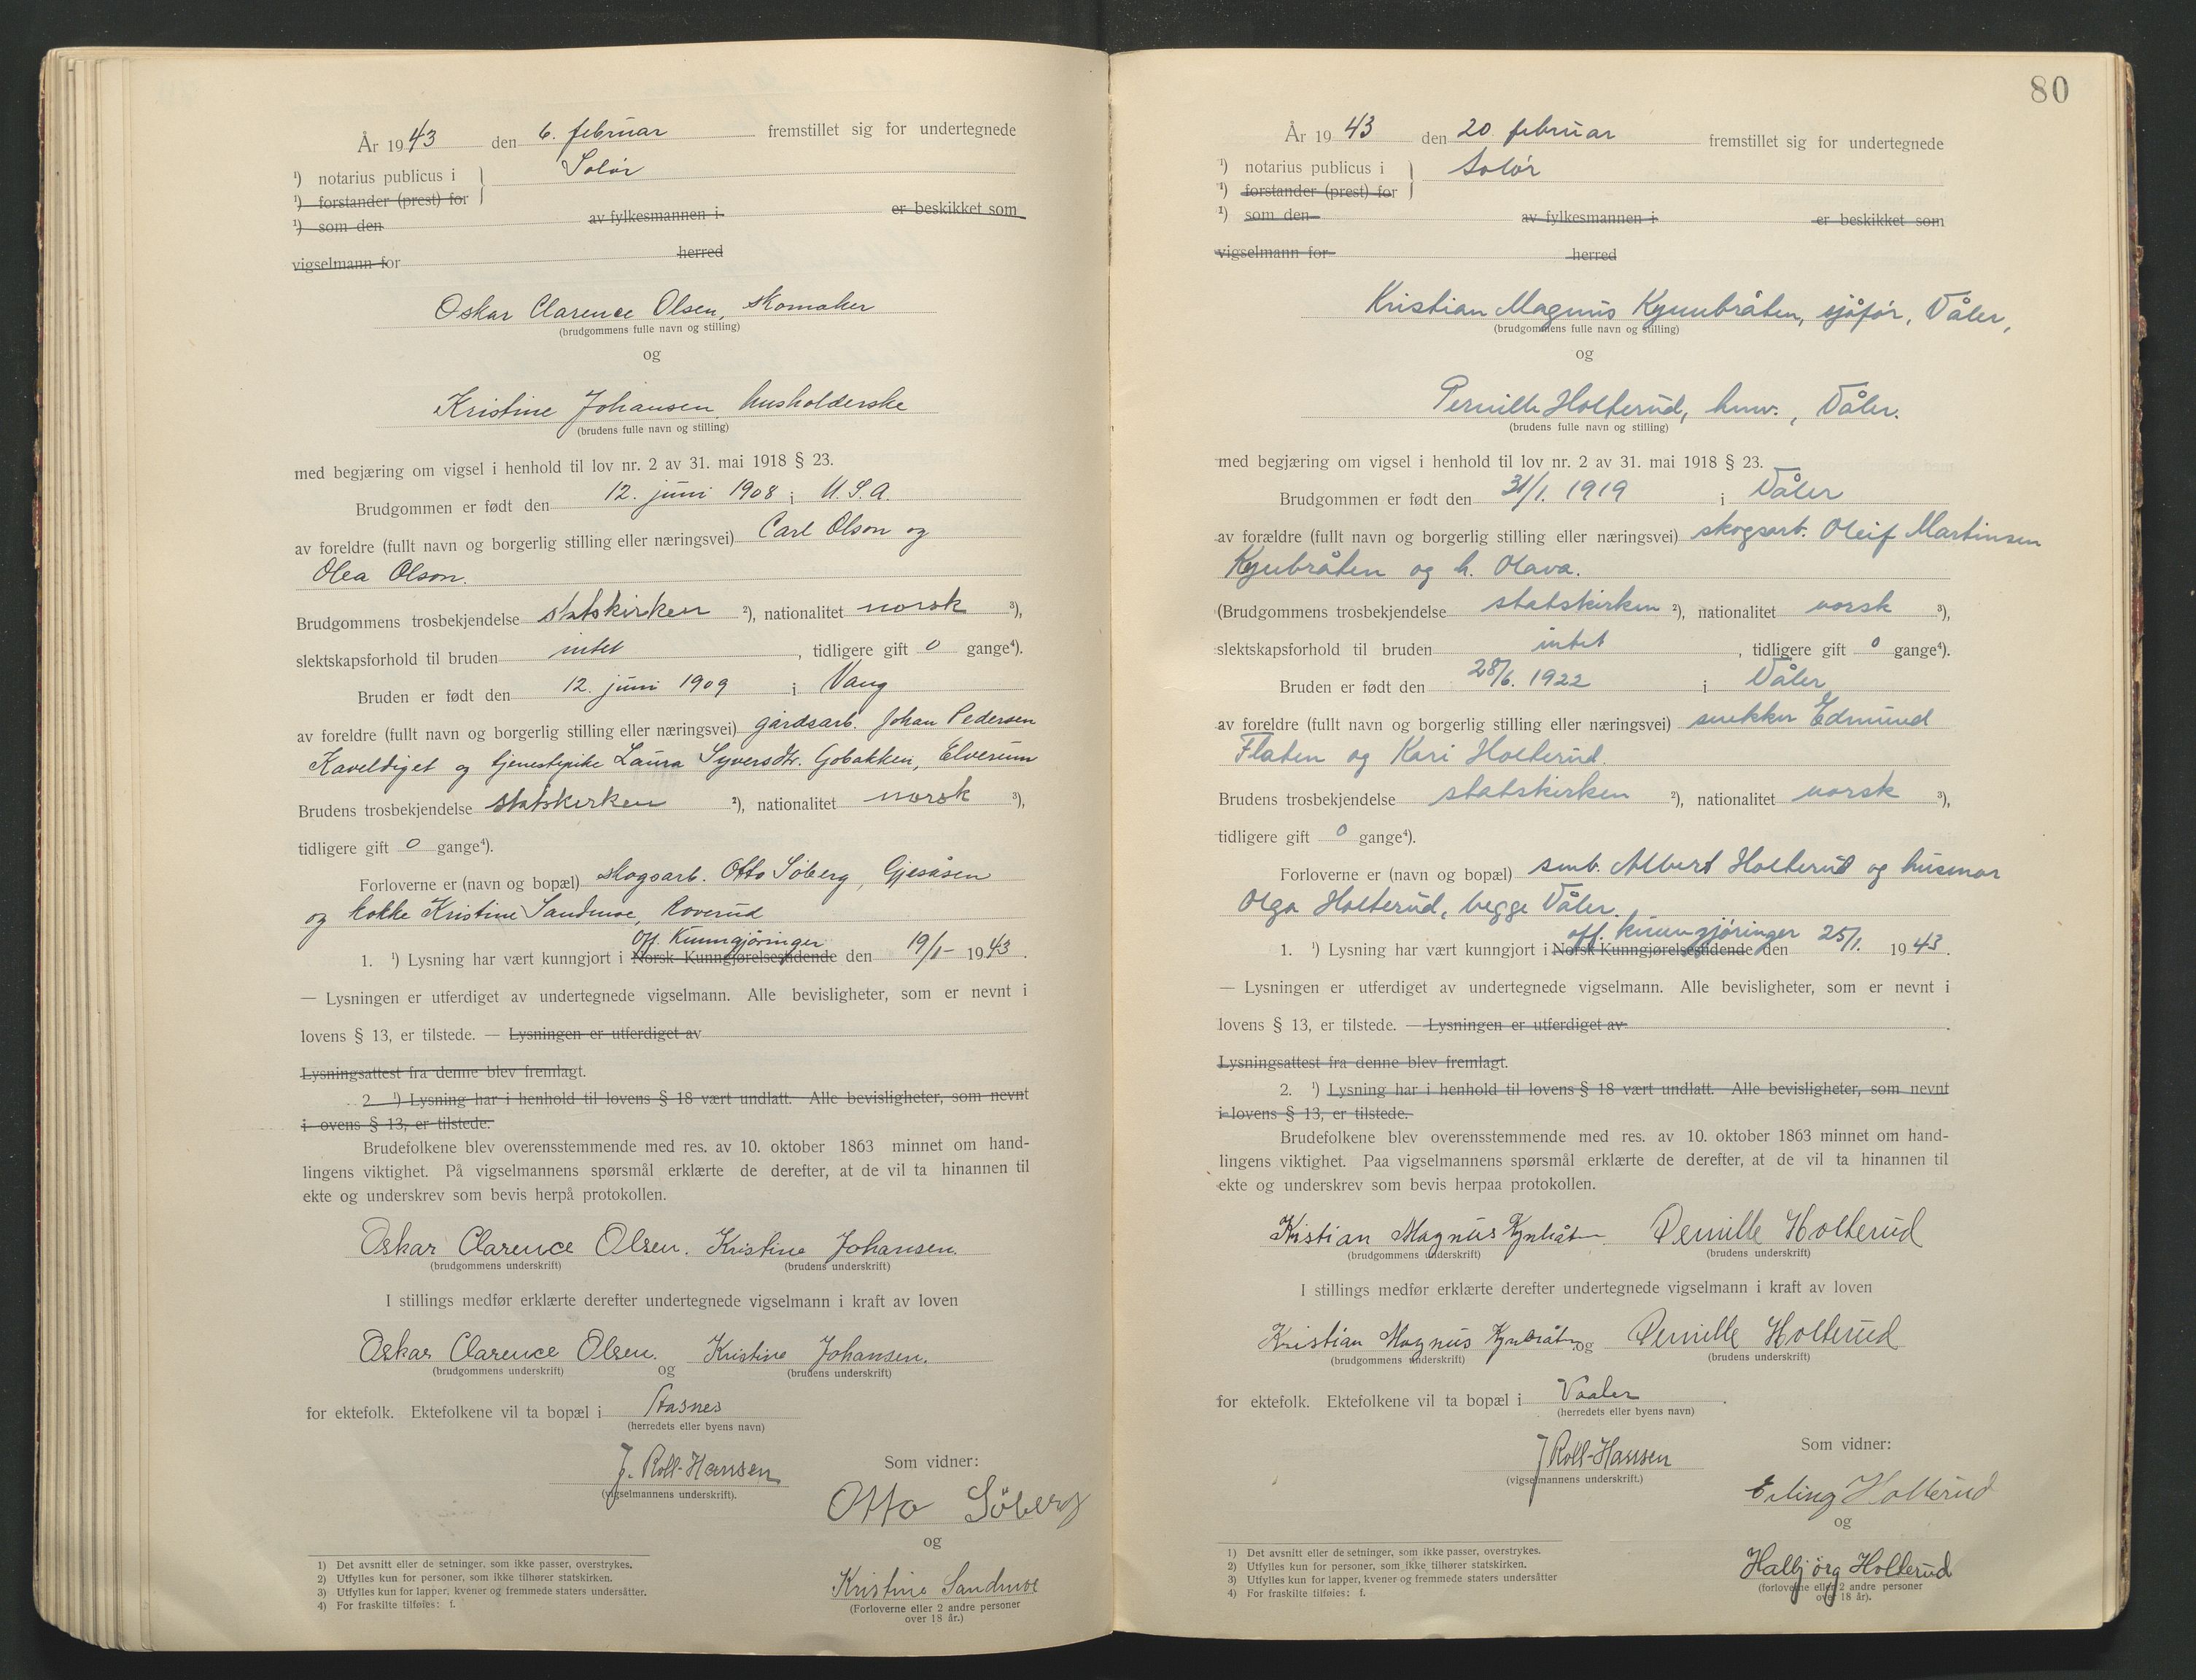 År 1943 den 6. februar fremstillet sig for undertegnede
¹) notarius publicus i Solør
¹) forstander (prest) for
¹) som den av fylkesmannen i er beskikket som
vigselmann for herred
Oskar Clarence Olsen, skomaker
(brudgommens fulle navn og stilling)
og
Kristine Johansen, husholderske
(brudens fulle navn og stilling)
med begjæring om vigsel i henhold til lov nr. 2 av 31. mai 1918 § 23.
Brudgommen er født den 12. juni 1908 i U.S.A.
av foreldre (fullt navn og borgerlig stilling eller næringsvei) Carl Olson og
Olea Olson.
Brudgommens trosbekjendelse statskirken ²), nationalitet norsk ³),
slektskapsforhold til bruden intet, tidligere gift 0 gange⁴).
Bruden er født den 12. juni 1909 i Vang
av foreldre (fullt navn og borgerlig stilling eller næringsvei) gårdsarb. Johan Pedersen
Kaveldiget og tjenestepike Laura Syversdtr. Gobakken, Elverum
Brudens trosbekjendelse statskirken ²), nationalitet norsk ³),
tidligere gift 0 gange⁴).
Forloverne er (navn og bopæl) skogsarb. Otto Søberg, Gjesåsen
og kokke Kristine Sandmoe, Roverud
off. Kunngjøringer
1. ¹) Lysning har vært kunngjort i Norsk Kunngjørelsestidende den 19/1- 1943.
— Lysningen er utferdiget av undertegnede vigselmann. Alle bevisligheter, som er nevnt i
lovens § 13, er tilstede. — Lysningen er utferdiget av
Lysningsattest fra denne blev fremlagt.
2 ¹) Lysning har i henhold til lovens § 18 vært undlatt. Alle bevisligheter, som nevnt
i ovens § 13, er tilstede.
Brudefolkene blev overensstemmende med res. av 10. oktober 1863 minnet om hand-
lingens viktighet. På vigselmannens spørsmål erklærte de derefter, at de vil ta hinannen til
ekte og underskrev som bevis herpå protokollen.
Oskar Clarence Olsen. Kristine Johansen.
(brudgommens underskrift) (brudens underskrift)
I stillings medfør erklærte derefter undertegnede vigselmann i kraft av loven
Oskar Clarence Olsen. og Kristine Johansen.
(brudgommens underskrift) (brudens underskrift)
for ektefolk. Ektefolkene vil ta bopæl i Hasnes
(herredets eller byens navn)
J. Roll-Hansen
(vigselmannens underskrift).
Som vidner:
Otto Söberg
og
Kristine Sandmoe
(Forloverne eller 2 andre personer
over 18 år.)
1) Det avsnitt eller de setninger, som ikke passer, overstrykes.
2) Utfylles kun for personer, som ikke tilhører statskirken.
3) Utfylles kun for lapper, kvener og fremmede staters undersåtter.
4) For fraskilte tilføies: f.
80
År 1943 den 20 februar fremstillet sig for undertegnede
¹) notarius publicus i Solør
¹) forstander (prest) for
¹) som den av fylkesmannen i er beskikket som
vigselmann for herred
Kristian Magnus Kynnbråten, sjåfør, Våler,
(brudgommens fulle navn og stilling)
og
Pernille Holterud, hmv., Våler.
(brudens fulle navn og stilling)
med begjæring om vigsel i henhold til lov nr. 2 av 31. mai 1918 § 23.
Brudgommen er født den 31/1. 1919 i Våler
av forældre (fullt navn og borgerlig stilling eller næringsvei) skogsarb. Oleif Martinsen
Kynbråten og h. Olava.
(Brudgommens trosbekjendelse statskirken ²), nationalitet norsk ³),
slektskapsforhold til bruden intet, tidligere gift 0 gange⁴).
Bruden er født den 28/6. 1922 i Våler
av foreldre (fullt navn og borgerlig stilling eller næringsvei) snekker Edmund
Flaten og Kari Holterud.
Brudens trosbekjendelse statskirken ²), nationalitet norsk ³),
tidligere gift 0 gange⁴).
Forloverne er (navn og bopæl) smb. Albert Holterud og husmor
Olga Holterud, begge Våler.
off. kunngjøringer
1. ¹) Lysning har vært kunngjort i Norsk Kunngjørelsestidende den 25/1. 1943.
— Lysningen er utferdiget av undertegnede vigselmann. Alle bevisligheter, som er nevnt i
lovens § 13, er tilstede. — Lysningen er utferdiget av .
Lysningsattest fra denne blev fremlagt.
2. ¹) Lysning har i henhold til lovens § 18 vært undlatt. Alle bevisligheter, som nevnt
i lovens § 13, er tilstede.
Brudefolkene blev overensstemmende med res. av 10. oktober 1863 minnet om hand-
lingens viktighet. Paa vigselmannens spørsmål erklærte de derefter, at de vil ta hinannen til
ekte og underskrev som bevis herpaa protokollen.
Kristian Magnus Kynbråten Pernille Holterud
(brudgommens underskrift) (brudens underskrift)
I stillings medfør erklærte derefter undertegnede vigselmann i kraft av loven
Kristian Magnus Kynbråten og Pernille Holterud
(brudgommens underskrift) (brudens underskrift)
for ektefolk. Ektefolkene vil ta bopæl i Vaaler.
(herredets eller byens navn)
J Roll-Hansen
(vigselmannens underskrift.)
Som vidner:
Erling Holterud
og
Halbjörg Holterud
(forloverne eller 2 andre personer
over 18 år).
1) Det avsnitt eller de setninger, som ikke passer, overstrykes.
2) Utfylles kun for personer, som ikke tilhører statskirken.
3) Utfylles kun for lapper, kvener og fremmede staters undersåtter
4) For fraskilte tilføies: f.